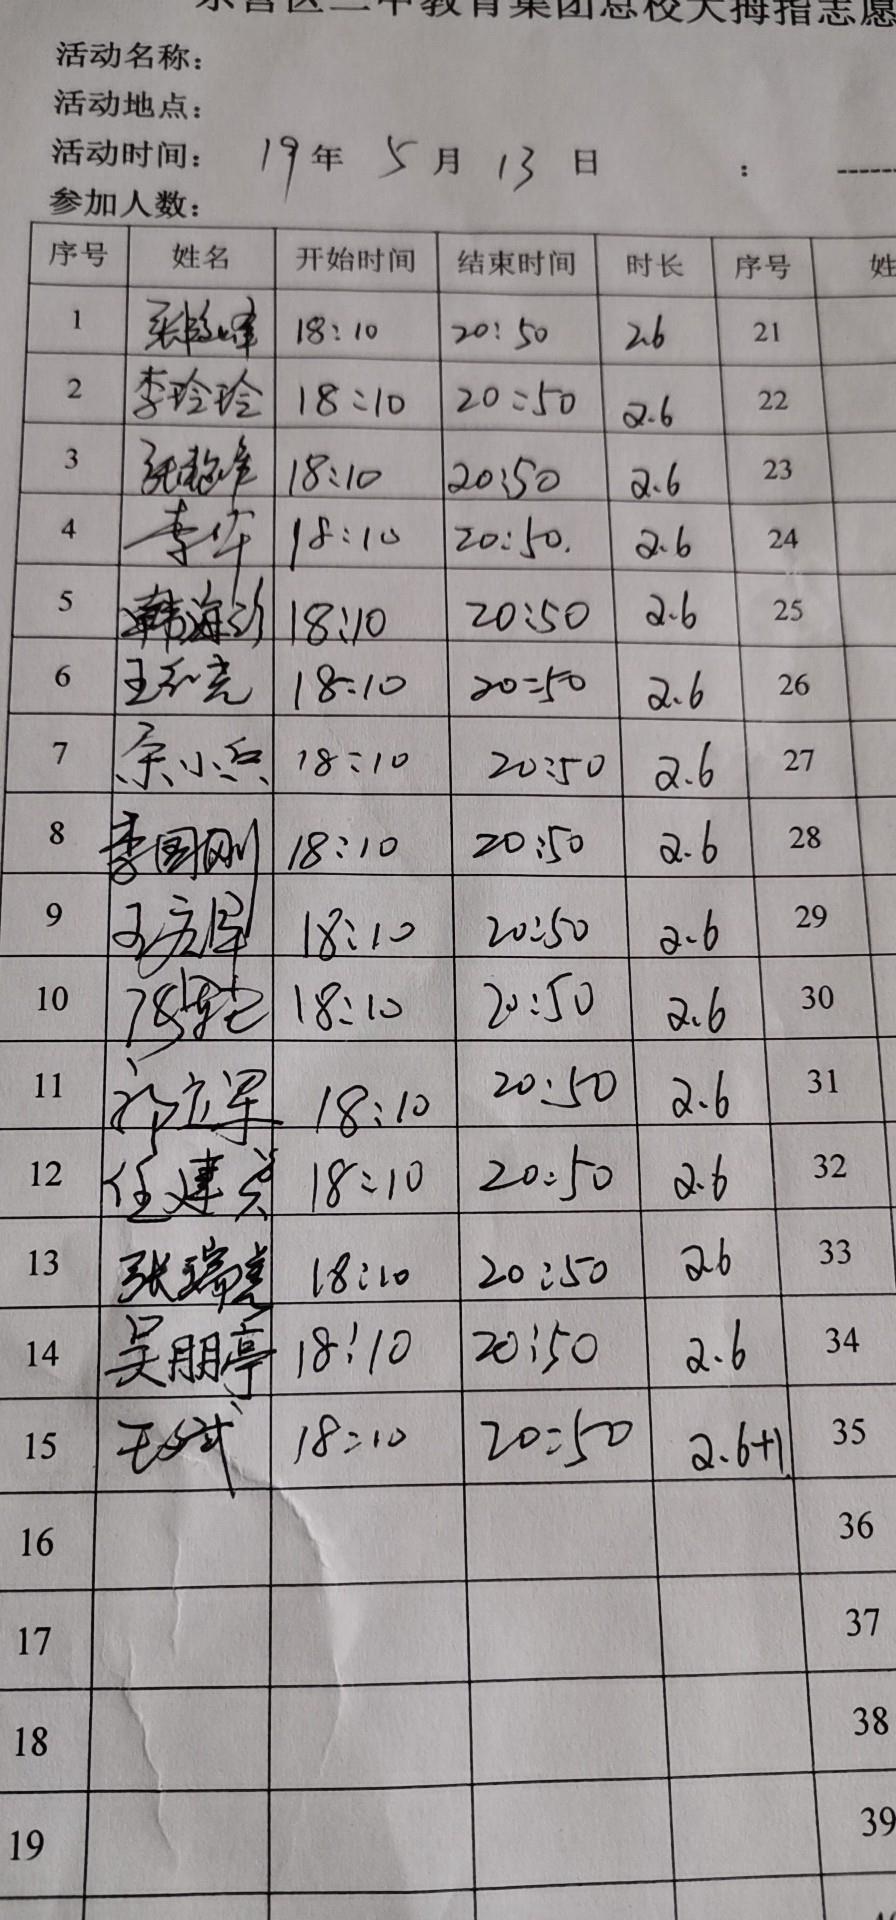 东营区二中教育集团总校大拇指志愿
活动名称：
活动地点：
活动时间： 19年 5月 13日 ： ------
参加人数：
序号 姓名 开始时间 结束时间 时长 序号 姓
1 18:10 20:50 2.6 21
2 李玲玲 18:10 20:50 2.6 22
3 18:10 20:50 2.6 23
4 李华 18:10 20:50. 2.6 24
5 韩海 18:10 20:50 2.6 25
6 18:10 20:50 2.6 26
7 小兵 18:10 20:50 2.6 27
8 李国刚 18:10 20:50 2.6 28
9 18:10 20:50 2.6 29
10 18:10 20:50 2.6 30
11 立军 18:10 20:50 2.6 31
12 任建 18:10 20:50 2.6 32
13 张瑞亮 18:10 20:50 2.6 33
14 吴朋亭 18:10 20:50 2.6 34
15 18:10 20:50 2.6+1 35
16 36
17 37
18 38
19 39